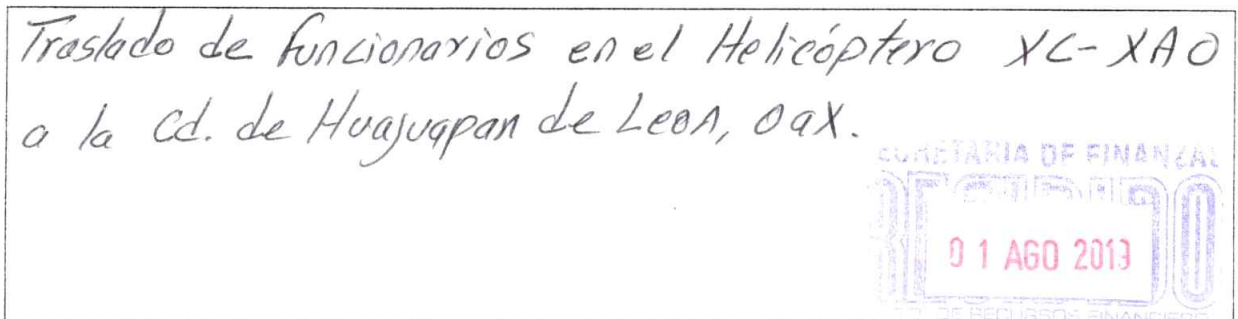 Traslado de funcionarios en el Helicóptero XC-XAO
a la Cd. de Huajuapan de Leon, Oax.
SECRETARIA DE FINANZAS
RECIBIDO
01 AGO 2013
DE RECURSOS FINANCIERO